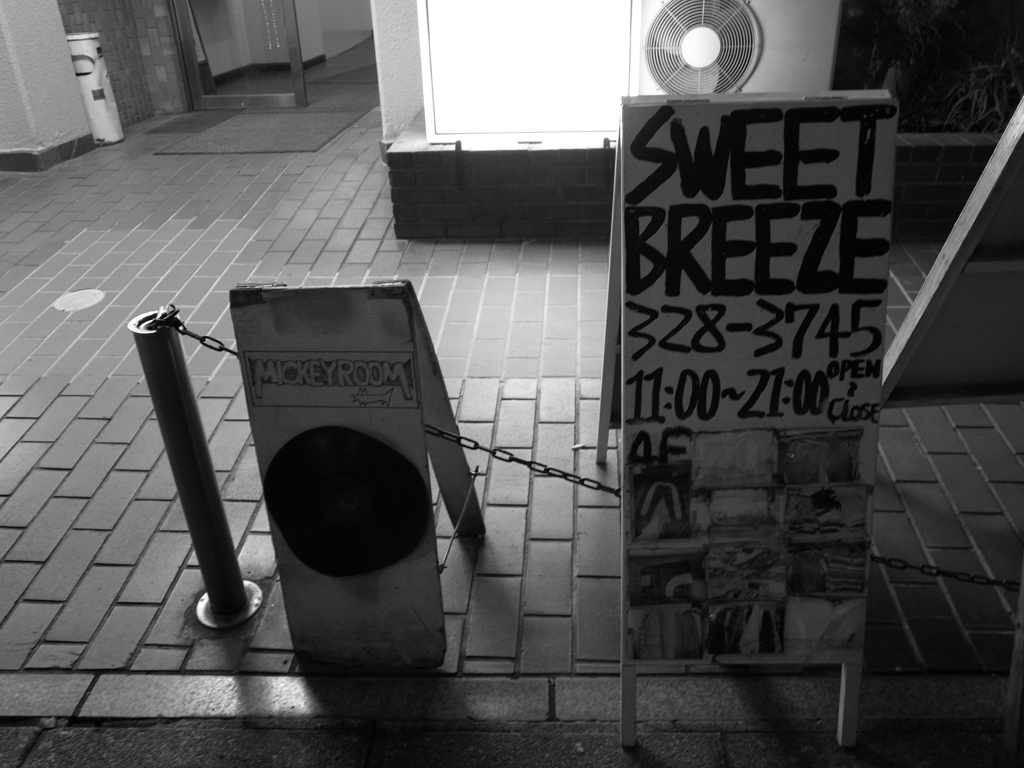 MICKEYROOM
SWEET
BREEZE
328-3745
11:00~21:00 OPEN
?
CLOSE